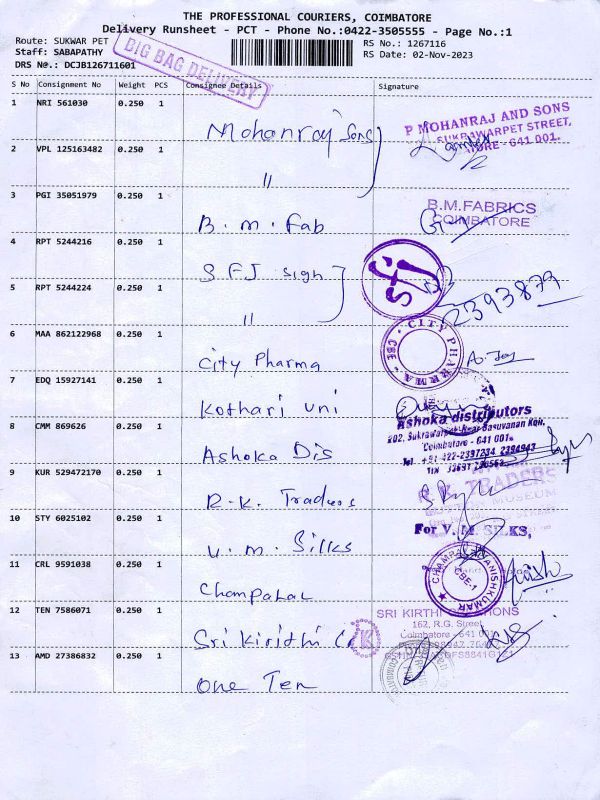 THE PROFESSIONAL COURIERS, COIMBATORE
Delivery Runsheet - PCT - Phone No.:0422-3505555 - Page No.:1
Route: SUKWAR PET
RS No.: 1267116
Staff: SABAPATHY
RS Date: 02-Nov-2023
DRS N@.: DCJB126711601
BIG BAG DELIVERY
S No Consignment No Weight PCS Consignee Details Signature
1 NRI 561030 0.250 1
Mohanraj Sons
P MOHANRAJ AND SONS
SUKRAWARPET STREET,
641 001.
2 VPL 125163482 0.250 1
"
3 PGI 35051979 0.250 1
B.M.FABRICS
COIMBATORE
B. m. fab
4 RPT 5244216 0.250 1
SFJ Sign
sfj
5 RPT 5244224 0.250 1
"
2393879
6 MAA 862122968 0.250 1
City Pharma
CITY PHARMA
CBE
7 EDQ 15927141 0.250 1
Kothari Uni
Ashoka distributors
8 CMM 869626 0.250 1
Coimbatore - 641 001.
Ashoka Dis
9 KUR 529472170 0.250 1
R.K. TRADERS
R.K. Traders
10 STY 6025102 0.250 1
For V. M. SILKS,
V. M. Silks
11 CRL 9591038 0.250 1
CBE-1
Champalal
12 TEN 7586071 0.250 1
SRI KIRTHI
162, R.G. Street,
Coimbatore - 641 001
Sri Kirithi
K
13 AMD 27386832 0.250 1
One Ten